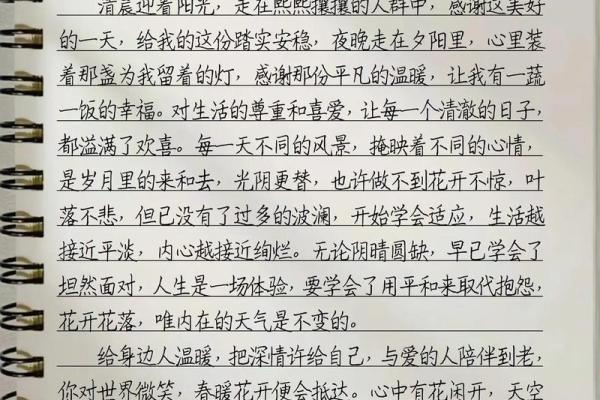 清晨迎着阳光，走在熙熙攘攘的人群中，感谢这美好
的一天，给我的这份踏实安稳，夜晚走在夕阳里，心里装
着那盏为我留着的灯，感谢那份平凡的温暖，让我有一蔬
一饭的幸福。对生活的尊重和喜爱，让每一个清澈的日子，
都溢满了欢喜。每一天不同的风景，掩映着不同的心情，
是岁月里的来和去，光阴更替，也许做不到花开不惊，叶
落不悲，但已没有了过多的波澜，开始学会适应，生活越
接近平淡，内心越接近绚烂。无论阴晴圆缺，早已学会了
坦然面对，人生是一场体验，要学会了用平和来取代抱怨，
花开花落，唯内在的天气是不变的。
给身边人温暖，把深情许给自己，与爱的人陪伴到老，
你对世界微笑，春暖花开便会抵达。心中有花闲开，天空